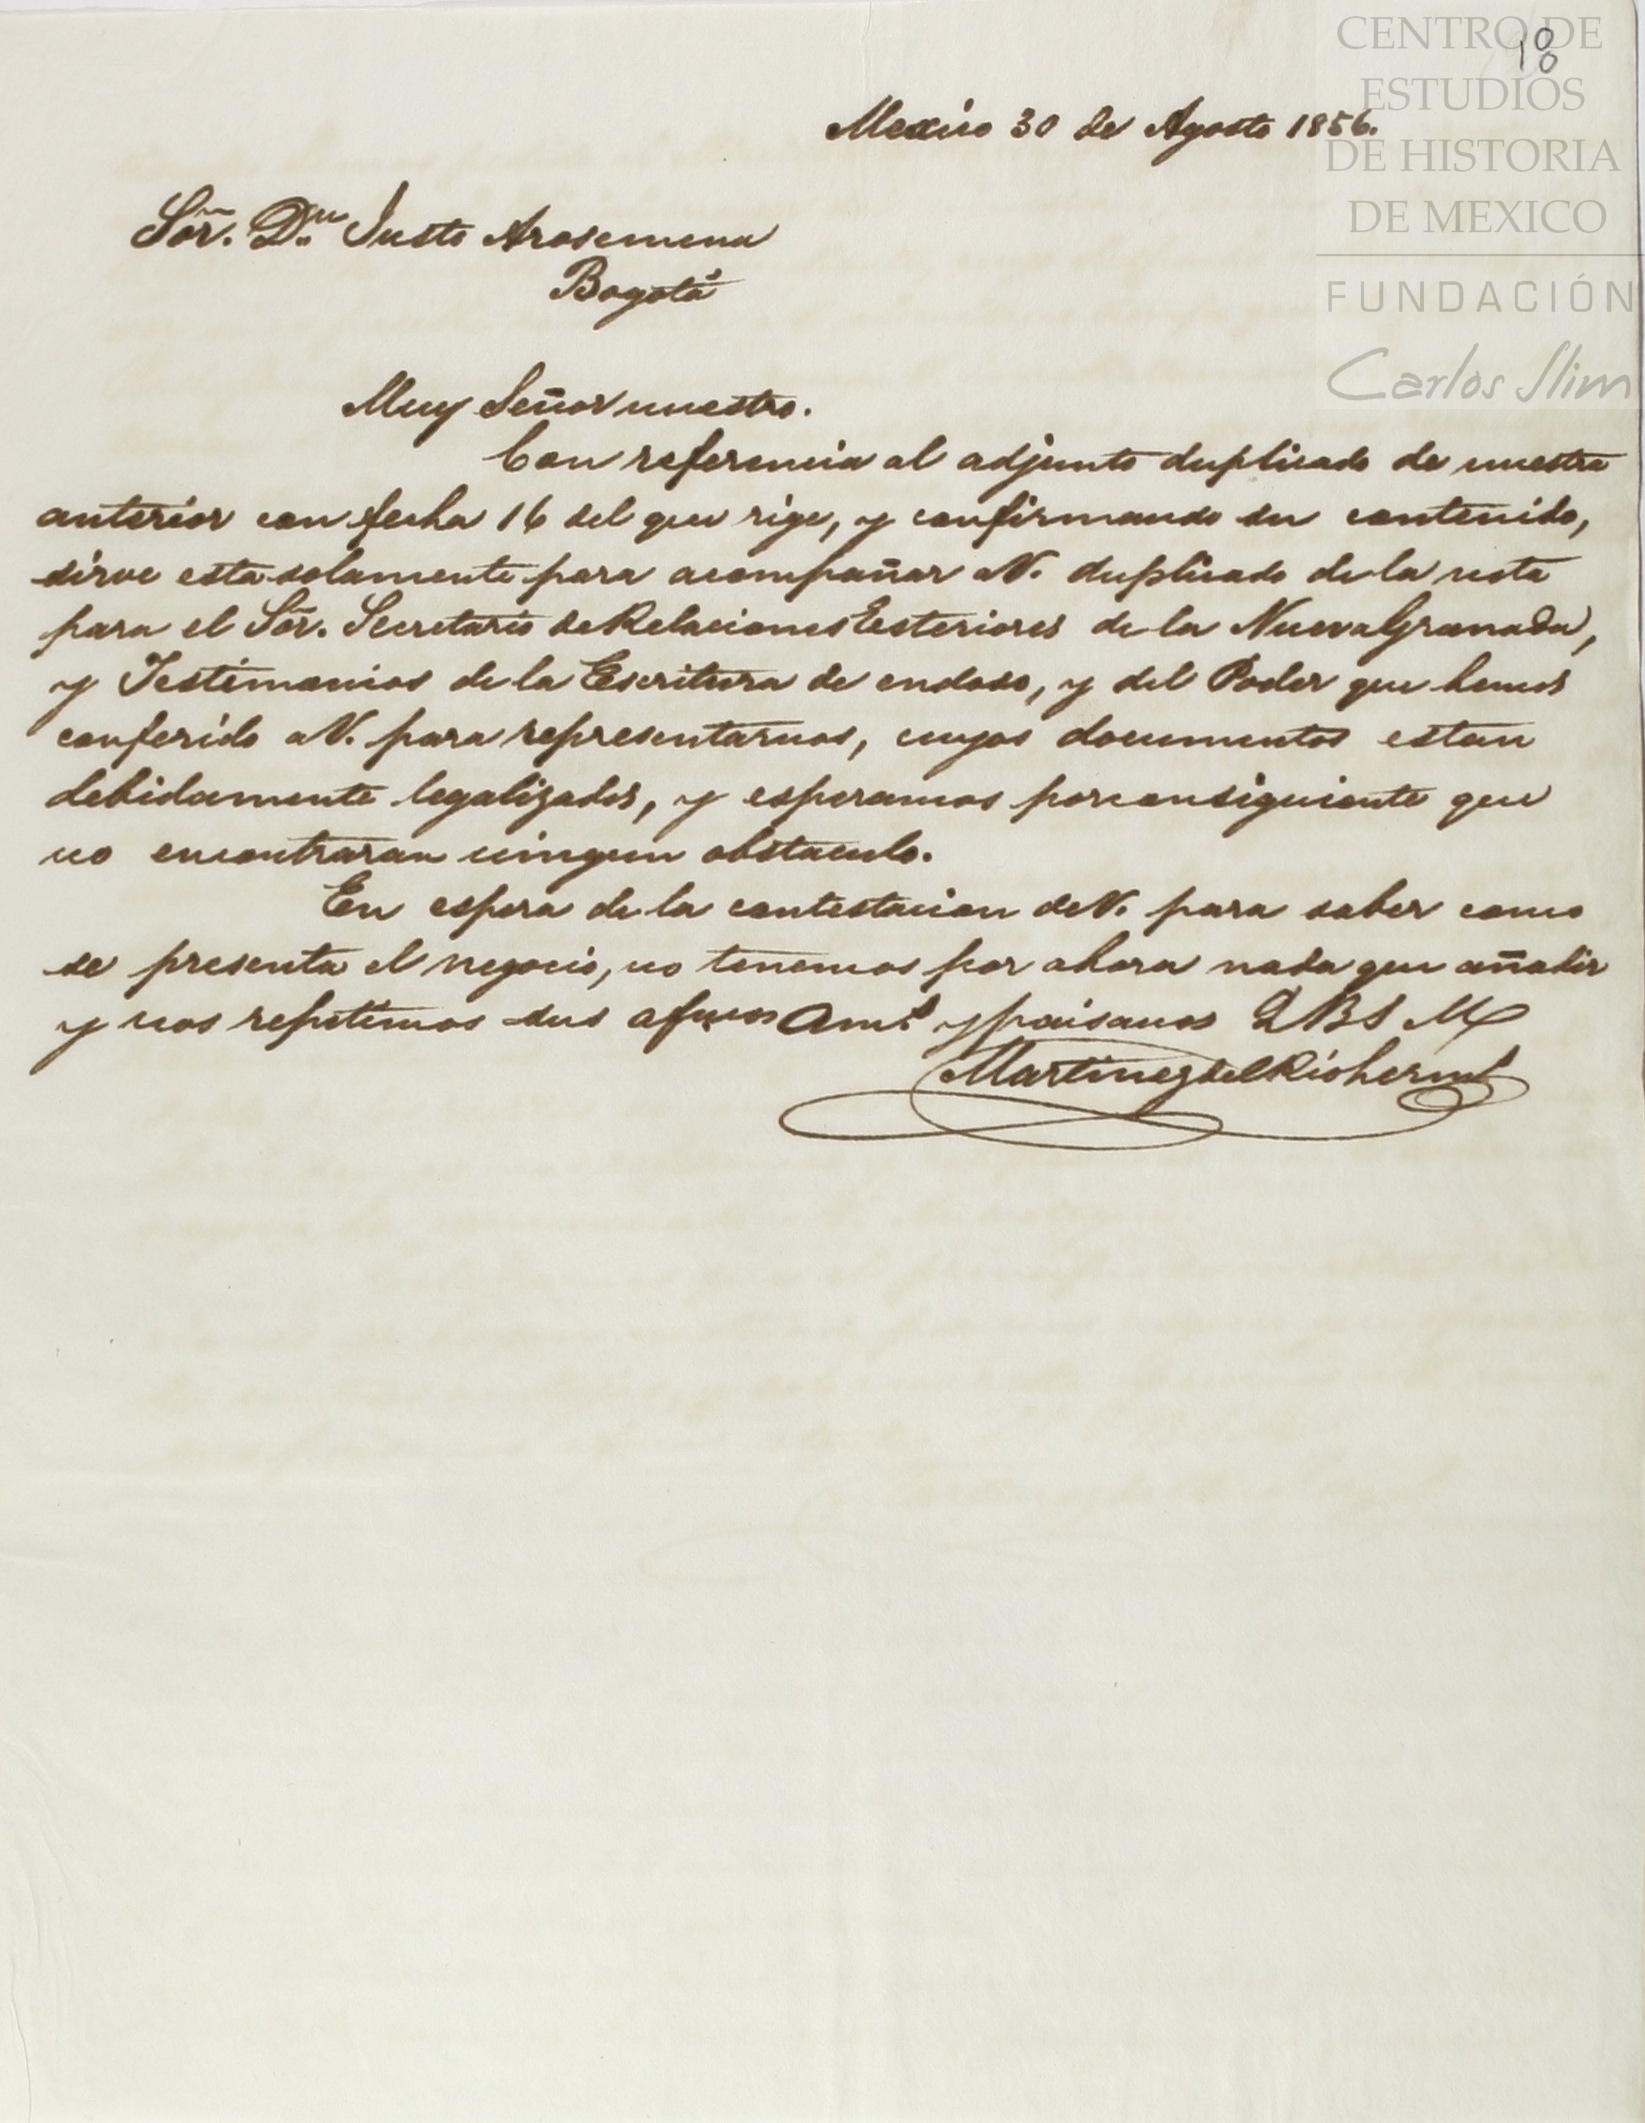 CENTRO DE
ESTUDIOS
DE HISTORIA
DE MEXICO
FUNDACIÓN
Carlos Slim
18
Mexico 30 de Agosto 1856.
Sõr. Dn. Justo Arosemena
Bogotá
Muy Señor nuestro.
Con referencia al adjunto duplicado de nuestra
anterior con fecha 16 del que rige, y confirmando su contenido,
sirve esta solamente para acompañar a V. duplicado de la nota
para el Sõr. Secretario de Relaciones Esteriores de la Nueva Granada,
y Testimonios de la Escritura de endoso, y del Poder que hemos
conferido a V. para representarnos, cuyos documentos estan
debidamente legalizados, y esperamos por consiguiente que
no encontraran ningun obstaculo.
En espera de la contestacion de V. para saber como
se presenta el negocio, no tenemos por ahora nada que añadir
y nos repetimos sus afmos Ams. y paisanos Q B S M
Martinez del Rio herms